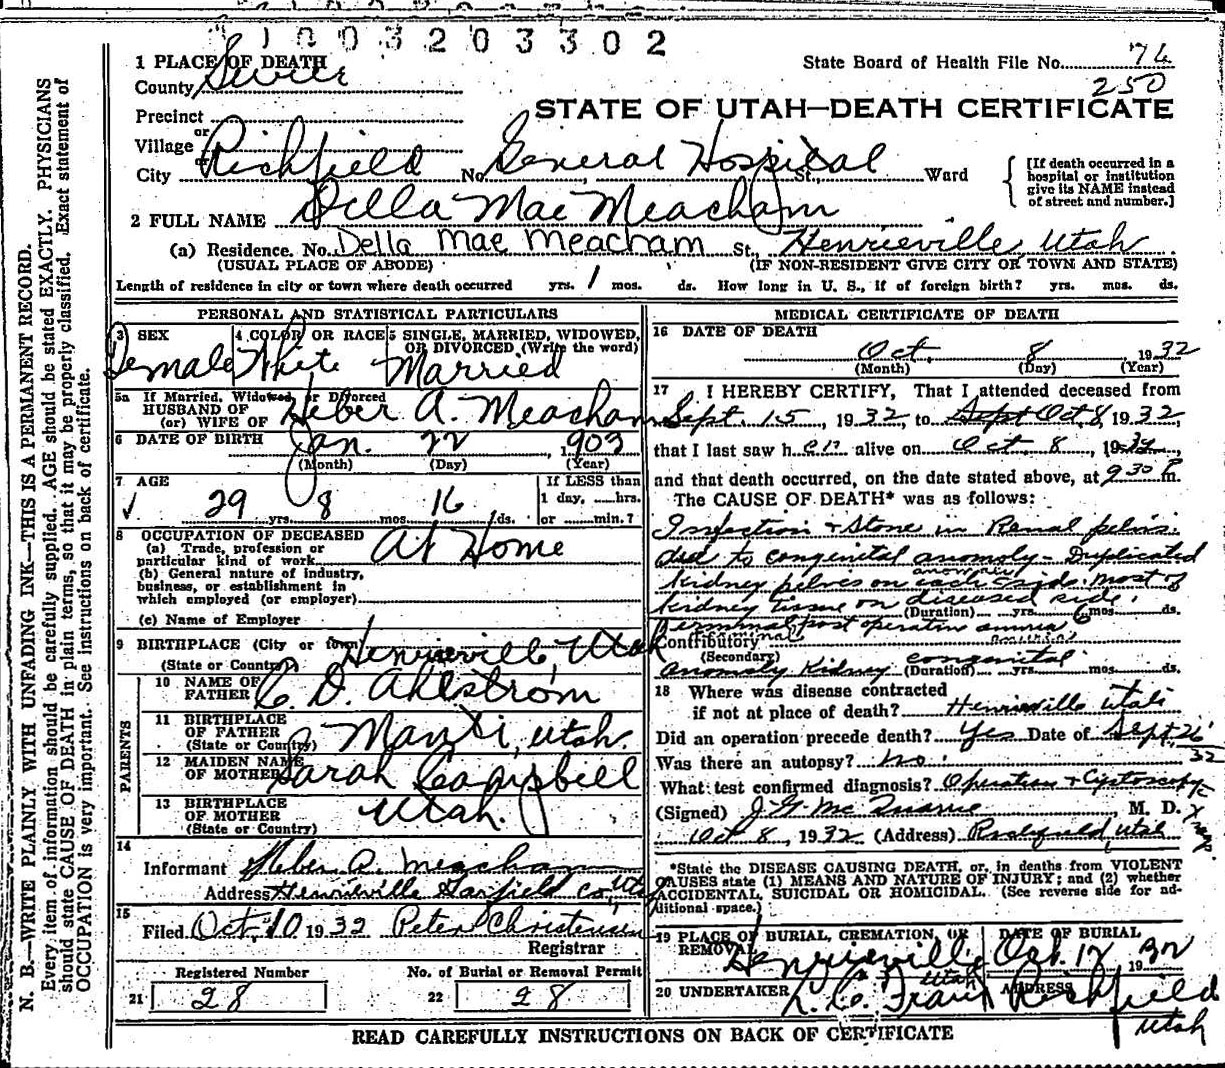 1003203302
1 PLACE OF DEATH
State Board of Health File No. 74
County Sevier
250
STATE OF UTAH—DEATH CERTIFICATE
Precinct
or
Village
or
City Richfield No. General Hospital St., Ward
[If death occurred in a hospital or institution give its NAME instead of street and number.]
2 FULL NAME Della Mae Meacham
(a) Residence. No. Della Mae Meacham St., Henrieville, Utah
(USUAL PLACE OF ABODE) (IF NON-RESIDENT GIVE CITY OR TOWN AND STATE)
Length of residence in city or town where death occurred yrs. 1 mos. ds. How long in U. S., if of foreign birth? yrs. mos. ds.
PERSONAL AND STATISTICAL PARTICULARS
3 SEX 4 COLOR OR RACE 5 SINGLE, MARRIED, WIDOWED, OR DIVORCED (Write the word)
Female White Married
5a If Married, Widowed, or Divorced
HUSBAND OF
(or) WIFE OF Heber A. Meacham
6 DATE OF BIRTH Jan. 22, 1903
(Month) (Day) (Year)
7 AGE If LESS than
1 day, hrs.
29 yrs. 8 mos. 16 ds. or min.?
8 OCCUPATION OF DECEASED
(a) Trade, profession or
particular kind of work At Home
(b) General nature of industry,
business, or establishment in
which employed (or employer)
(c) Name of Employer
9 BIRTHPLACE (City or town) Henrieville, Utah
(State or Country)
PARENTS
10 NAME OF
FATHER C. D. Ahlstrom
11 BIRTHPLACE
OF FATHER
(State or Country) Manti, Utah.
12 MAIDEN NAME
OF MOTHER Sarah Campbell
13 BIRTHPLACE
OF MOTHER
(State or Country) Utah.
14
Informant Heber A. Meacham
Address Henrieville Garfield Co, Utah
15
Filed Oct. 10 1932 Peter Christensen
Registrar
Registered Number No. of Burial or Removal Permit
21 28 22 28
MEDICAL CERTIFICATE OF DEATH
16 DATE OF DEATH
Oct. 8 1932
(Month) (Day) (Year)
17 I HEREBY CERTIFY, That I attended deceased from
Sept. 15, 1932, to Sept Oct. 8, 1932,
that I last saw her alive on Oct. 8, 1932,
and that death occurred, on the date stated above, at 9 30 P. m.
The CAUSE OF DEATH* was as follows:
Infection + Stone in Renal pelvis
due to congenital anomoly - Duplicated
kidney pelves on each side. most of
kidney tissue on diseased side.
(Duration) yrs. 6 mos. ds.
Terminal post operative
Contributory
(Secondary)
Anomoly Kidney congenital
(Duration) yrs. mos. ds.
18 Where was disease contracted
if not at place of death? Henrieville Utah
Did an operation precede death? Yes Date of Sept. 26 32
Was there an autopsy? no.
What test confirmed diagnosis? Operation + Cystoscopy
(Signed) J. G. McQuarrie M. D.
Oct 8, 1932 (Address) Richfield, Utah
*State the DISEASE CAUSING DEATH, or, in deaths from VIOLENT
CAUSES state (1) MEANS AND NATURE OF INJURY; and (2) whether
ACCIDENTAL, SUICIDAL OR HOMICIDAL. (See reverse side for ad-
ditional space.)
19 PLACE OF BURIAL, CREMATION, OR REMOVAL DATE OF BURIAL
Henrieville Utah Oct. 12 1932
20 UNDERTAKER ADDRESS
Richfield
Utah
READ CAREFULLY INSTRUCTIONS ON BACK OF CERTIFICATE
N. B.—WRITE PLAINLY WITH UNFADING INK—THIS IS A PERMANENT RECORD.
Every item of information should be carefully supplied. AGE should be stated EXACTLY. PHYSICIANS
should state CAUSE OF DEATH in plain terms, so that it may be properly classified. Exact statement of
OCCUPATION is very important. See instructions on back of certificate.